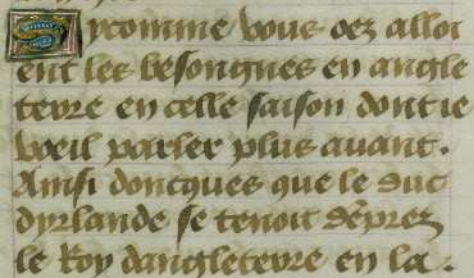 Sycomme vous oez alloi
ent les besongnes en angle
terre en celle saison dont ie
voeil parler plus auant.
Ainsi doncques que le duc
dyrlande se tenoit deprez
le Roy dangleterre en la.